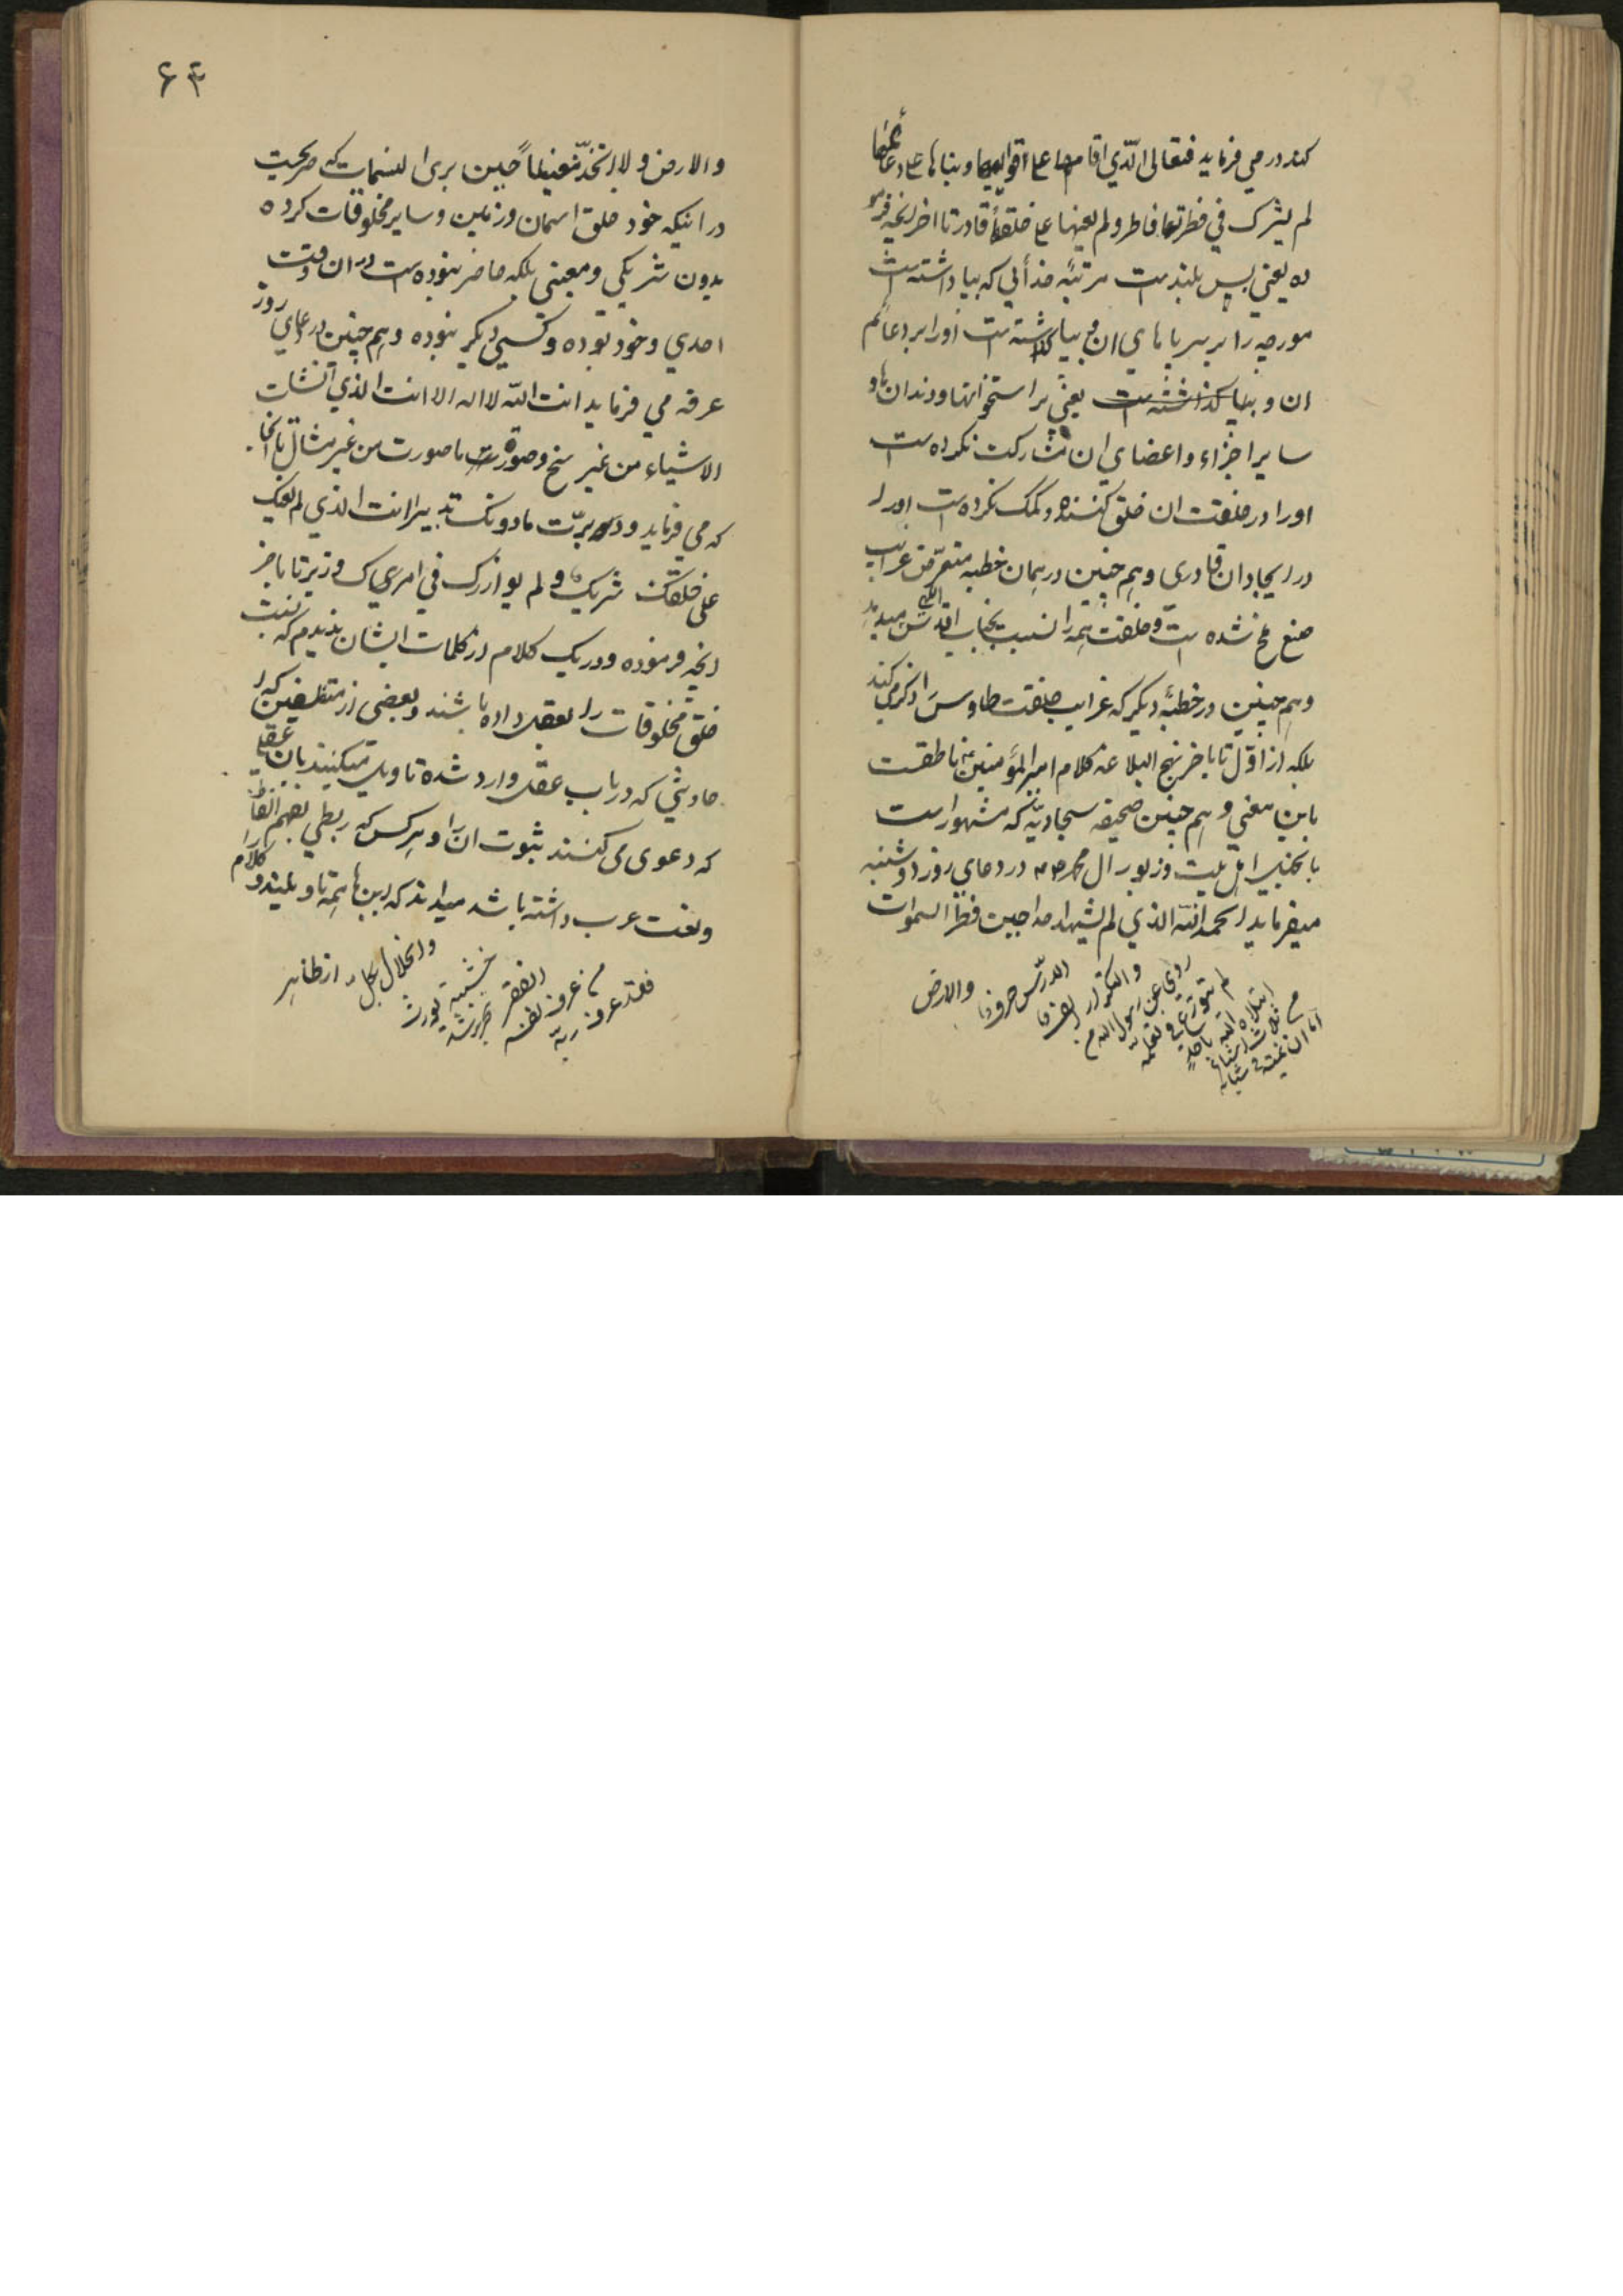 کند در می فرماید فتعالی الّذی اقامها علی قوایمها و بناها علی دعائمها
لم یشرک فی فطرتها فاطر و لم یعنها علی خلقها قادر تا اخر انچه فرمو
ده یعنی پس بلند است مرتبه خدائی که بپا داشته است
مورچه را بر سر پاهای ان و بنا گذاشته است او را بر دعائم
ان و بنا گذاشته است یعنی بر استخوانها و دندان ها و
سایر اجزاء و اعضای ان مشارکت نکرده است
او را در خلقت ان خلق کننده و کمک نکرده است او را
در ایجاد ان قادری و هم چنین در همان خطبه متعرّض غرایب
صنع ملخ شده است و خلقت همه را نسبت بجناب اقدس الهی میدهد
و هم چنین در خطبه دیگر که غرایب خلقت طاوس را ذکر می کند
بلکه از اوّل تا باخر نهج البلاغه کلام امیر المؤمنین ناطقست
باین معنی و هم چنین صحیفه سجادیّه که مشهور است
بانجیل اهل بیت و زبور ال محمد در دعای روز دوشنبه
میفرماید الحمد لله الذی لم یشهد احدا حین فطر السموات
والارض
الدرس حرفا
و التکرار الف
روی عن رسول الله
لم یتورّع فی تعلّمه
ابتلاه الله باحد
ثلاث اشیاء
اما ان یمیته فی شبابه
۶۴
و الارض و لا اتخذ معینا حین برئ النسمات که صریحست
در اینکه خود خلق اسمان و زمین و سایر مخلوقات کرده
بدون شریکی و معینی بلکه حاضر نبوده است در ان وقت
احدی و خود بوده و کسی دیگر نبوده و هم چنین در دعای روز
عرفه می فرماید انت الله لا اله الا انت الذی انشات
الاشیاء من غیر سنخ و صورت ما صورت من غیر مثال تا انجا
که می فرماید و دبرت ما دونک تدبیرا انت الذی لم یعنک
علی خلقک شریک و لم یوازرک فی امرک وزیر تا باخر
انچه فرموده و در یک کلام از کلمات ایشان ندیدم که نسبت
خلق مخلوقات را بعقل داده باشند و بعضی از متفلسفین که
احادیثی که در باب عقل وارد شده تاویل میکنند بان عقلی
که دعوی می کنند ثبوت ان را و هر کس که ربطی بفهم الفاظ
و لغت عرب داشته باشد میداند که این ها همه تاویلیند و کلام را
از ظاهر
و انحلال کل
خشیة تورث
الفقر
من عرف نفسه
فقد عرف ربه